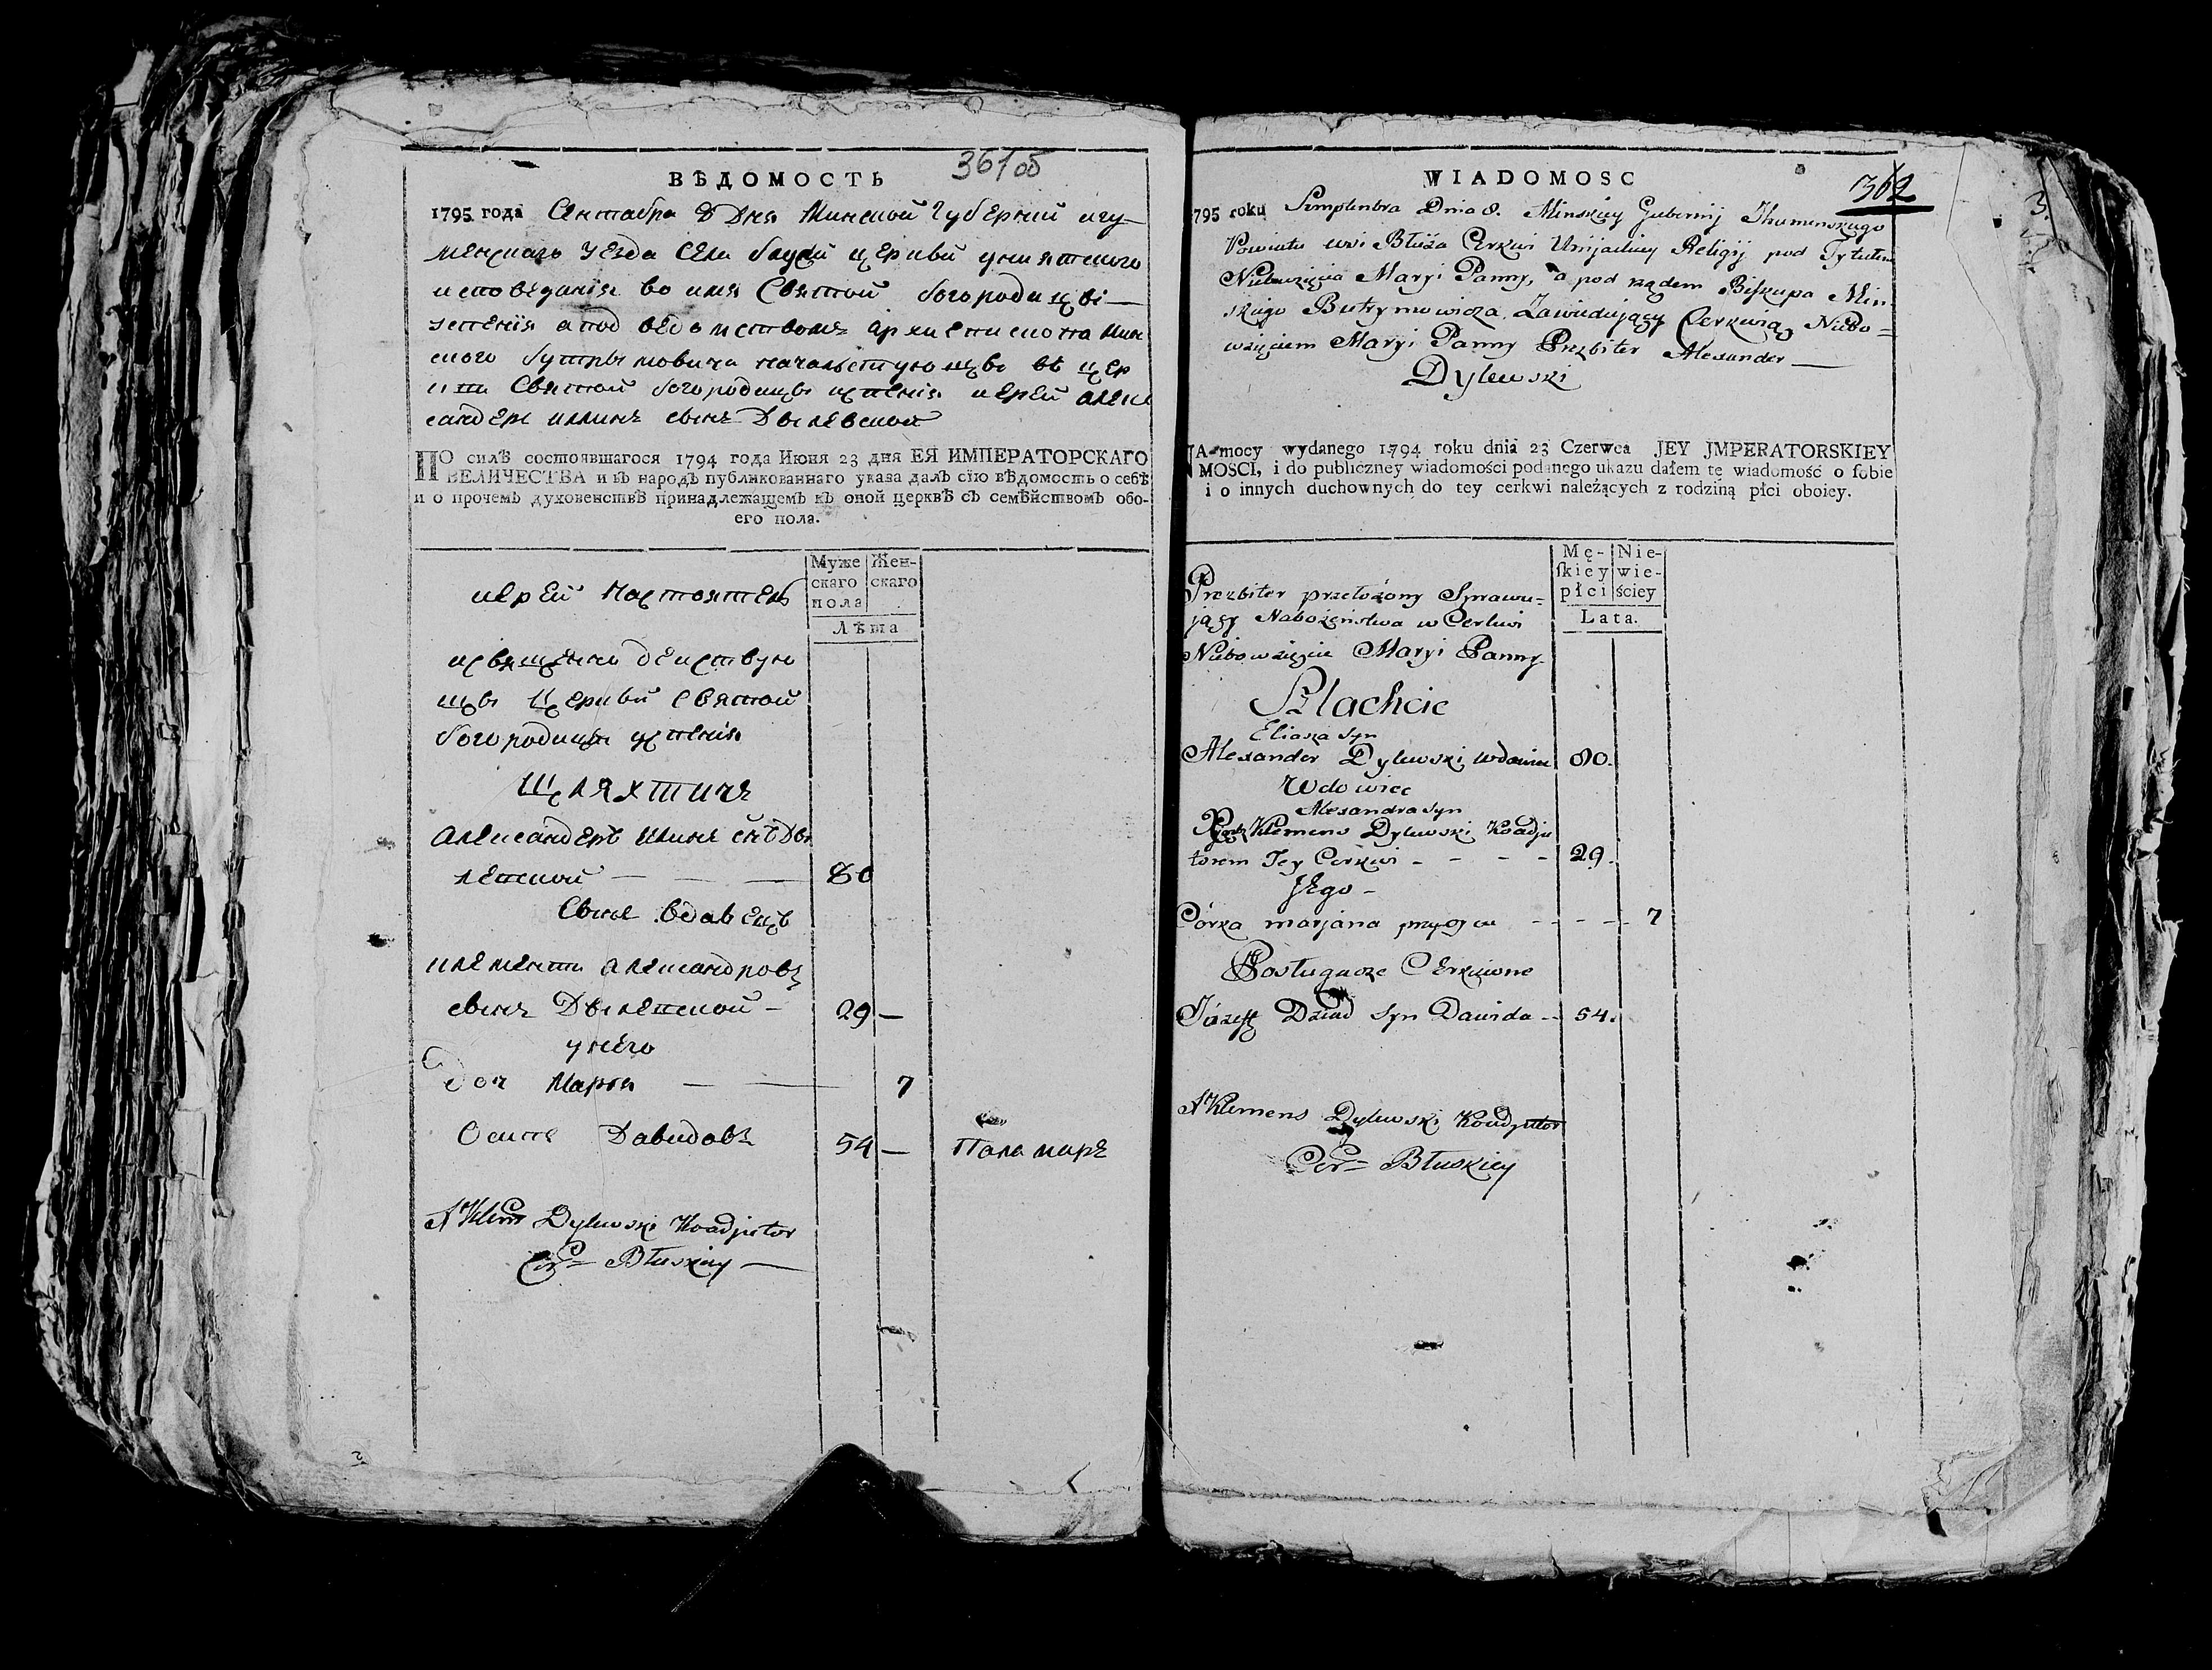 361об
ВѢДОМОСТЬ
1795 года Сентабра 8 Дня Минской Губернии игу-
менскаго уезда села блужи церкви униятского
исповеданія во имя Святой богородицы
успенія а под ведомством архиепископа мин
ского бутрымовича начальствующы въ цер
кви Святой богородицы успенія иерей алек
сандеръ иллинъ сынъ Дылевской
ПО силѣ состоявшагося 1794 года Июня 23 дня ЕЯ ИМПЕРАТОРСКАГО
ВЕЛИЧЕСТВА и въ народъ публикованнаго указа далъ сїю вѣдомость о себѣ
и о прочемъ духовенствѣ принадлежащемъ къ оной церквѣ съ семѣйствомъ обо-
его пола.
Муже Жен-
скаго скаго
пола
Лѣта
иерей Настоятель
священно действую
щы Церкви святой
богородицы успенія
Шляхтичъ
Александеръ илинъ снъ Ды
левской — — — 80
вдавецъ
клементи александровъ
сынъ Дылевской — 29 —
у него
доч Марья — — 7
Осипъ Давидовъ 54 — Паламаръ
X Klem Dylewski Koadjutor
Cer= Błuskiey —
WIADOMOSC
362
1795 roku Semptembra Dnia 8. Minskiey Gubernij Ihumenskiego
Powiatu wsi Błuża Cerkwi Unijackiey Religij pod Tytułem
Niebowzięcia Maryi Panny, a pod rządem Biskupa Min-
skiego Butrymowicza, Zawiadujący Cerkwią Niebo=
wzięciem Maryi Panny Prezbiter Alexander —
Dylewski
NA mocy wydanego 1794 roku dnia 23 Czerwca JEY JMPERATORSKIEY
MOSCI, i do publiczney wiadomości podanego ukazu dałem tę wiadomość o sobie
i o innych duchownych do tey cerkwi należących z rodziną płci oboiey.
Mę- Nie-
skiey wie-
płci ściey
Lata.
Prezbiter przełożony Sprawu=
jący Nabożeństwa w Cerkwi
Niebowzięcia Maryi Panny
Szlachcic
Eliasza syn
Alexander Dylewski wdowiec 80.
Wdowiec
Alexandra syn
Klemens Dylewski Koadju
torem Tey Cerkwi - - - - 29.
Jego -
Córka marjana przy ojcu - - - - 7
Posługacze Cerkiewne
Józeff Dziad Syn Dawida - - 54.
X Klemens Dylewski Koadjutor
Cer= Błuskiey